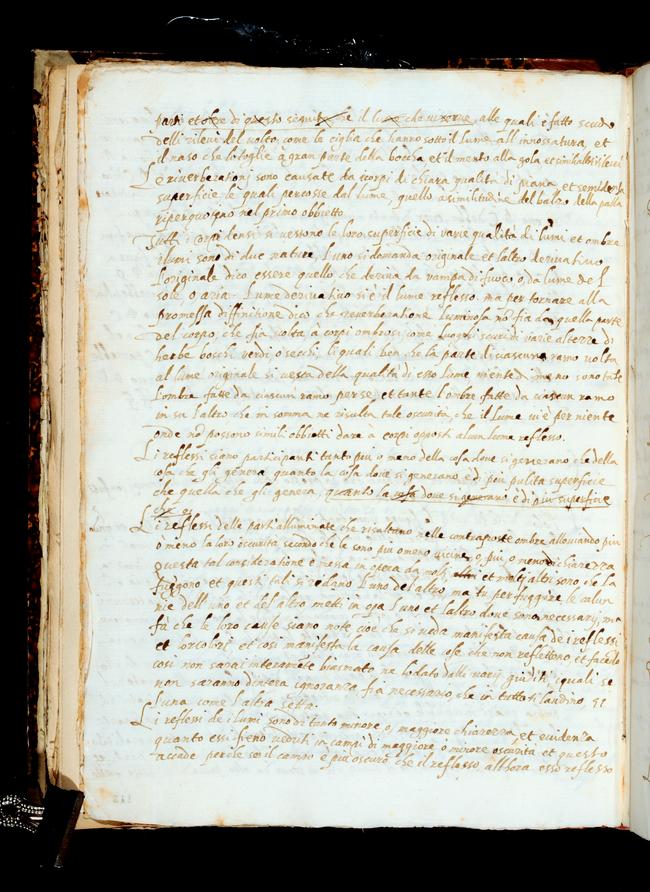 parti et oltre di questo seguita che il lume che vi corre, alle quali è fatto scudo
delli rilevi del volto, come le ciglia che hanno sotto il lume all'innossatura, et
il naso che lo toglie à gran parte della bocca, et il mento alla gola et
Le riverberationj sono causate da corpi di chiara qualità di piana, et semidensa
superficie le quali percosse dal lume, quello a similitudine del balzo della palla
ripercuotono nel primo obbietto
Tutti i corpi densi si vestono le loro superficie di varie qualità di lumi et ombre
i lumi sono di due nature, l'uno si domanda originale et l'altro derivativo
l'originale dico essere quello che deriva da vampa di fuoco o da lume del
sole, o aria. Lume derivativo si è il lume reflesso. ma per tornare alla
promessa diffinitione dico che reverberatione luminosa nõ fia da quella parte
del corpo, che fia volta à corpi ombrosi come luoghi scuri di varie altezze di
herbe boschi verdi, o secchi, li quali ben che la parte di ciascuna ramo volta
al lume originale si vesta della qualità di esso lume niente di meno sono tante
l'ombre fatte da ciascun ramo per se, et tante l'ombre fatte da ciascun ramo
in su l'altro che in somma ne risulta tale oscurità, che il lume vi è per niente
onde nõ possono simili obbietti dare à corpi oppositi alcun lume reflesso.
Li reflessi siano participanti tanto più o meno della cosa dove si generano che della
cosa che gli genera, quanto la cosa dove si generano è di più pulita superficie
che quella che gli genera, quanto la cosa dove si generano è di più superficie
che
Li reflessi delle parti alluminate che risaltano nelle contraposte ombre alleviando piu
ò meno la loro oscurità secondo che le sono piu o meno vicine, o piu, o meno di chiarezza
questa tal consideratione è messa in opera da molti altri et molti altri sono che la
fuggono et questi tali si ridano l'uno del'altro, ma tu per fuggire le calun
nie dell'uno et del altro metti in opa l'uno et l'altro dove sono necessarij, ma
fa che le loro cause siano note, cioè che si veda manifesta causa dei reflessi
et lor colori, et cosi manifesta la causa delle cose che non reflettono, et facendo
cosi non sarai interamete biasmato ne lodato dalli varij giuditij, i quali se
non saranno d'intera ignoranza fia necessario che in tutto ti laudino, si
l'una come l'altra setta.
Li reflessi de i lumi sono di tanto minore, o maggiore chiarezza, et evidenza
quanto essi fieno veduti in campi di maggiore o minore oscurità et questo
accade perche se il campo è piu oscuro che il reflesso, allhora esso reflesso